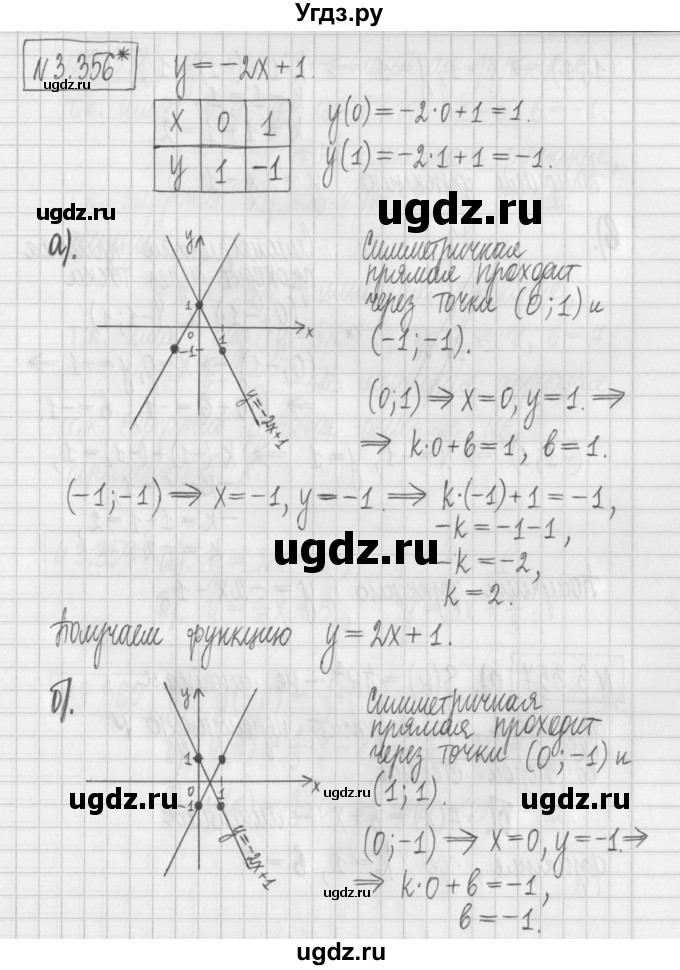 Угдз.ру
№3.356*
ugdz.ru
y=-2x+1.
x 0 1
y 1 -1
y(0)=-2·0+1=1.
y(1)=-2·1+1=-1.
ugdz.ru
ugdz.ru
а).
y
1
0
1
x
-1
y=-2x+1
Симметричная
прямая проходит
через точки (0;1) и
(-1;-1).
(0;1)⇒x=0, y=1.⇒
⇒ k·0+в=1, в=1.
(-1;-1)⇒x=-1, y=-1.⇒k·(-1)+1=-1,
-k=-1-1,
ugdz.ru
-k=-2,
k=2.
Получаем функцию y=2x+1.
б).
y
1
0
1
x
-1
y=-2x+1
Симметричная
прямая проходит
через точки (0;-1) и
(1;1).
ugdz.ru
ugdz.ru
ugdz.ru
(0;-1)⇒x=0, y=-1.⇒
⇒ k·0+в=-1,
ugdz.ru
в=-1.
ugdz.ru